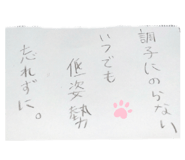 調子にのらない
いつでも
低姿勢
忘れずに。